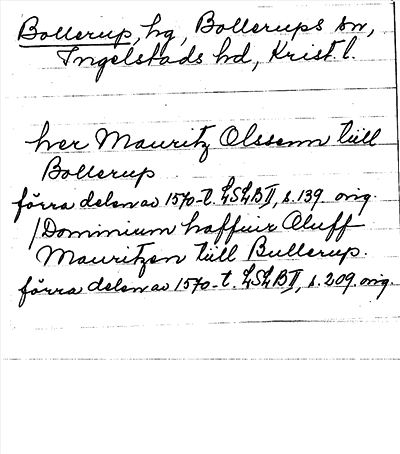 Bollerup, hg, Bollerups sn,
Ingelstads hd, Krist. l.
her Mauritz Olssenn till
Bollerup
förra delen av 1570-t. LSLB II, s. 139. orig.
/Dominium haffuir Aluff
Mauritzen till Bullerup.
förra delen av 1570-t. LSLB II, s. 209. orig.